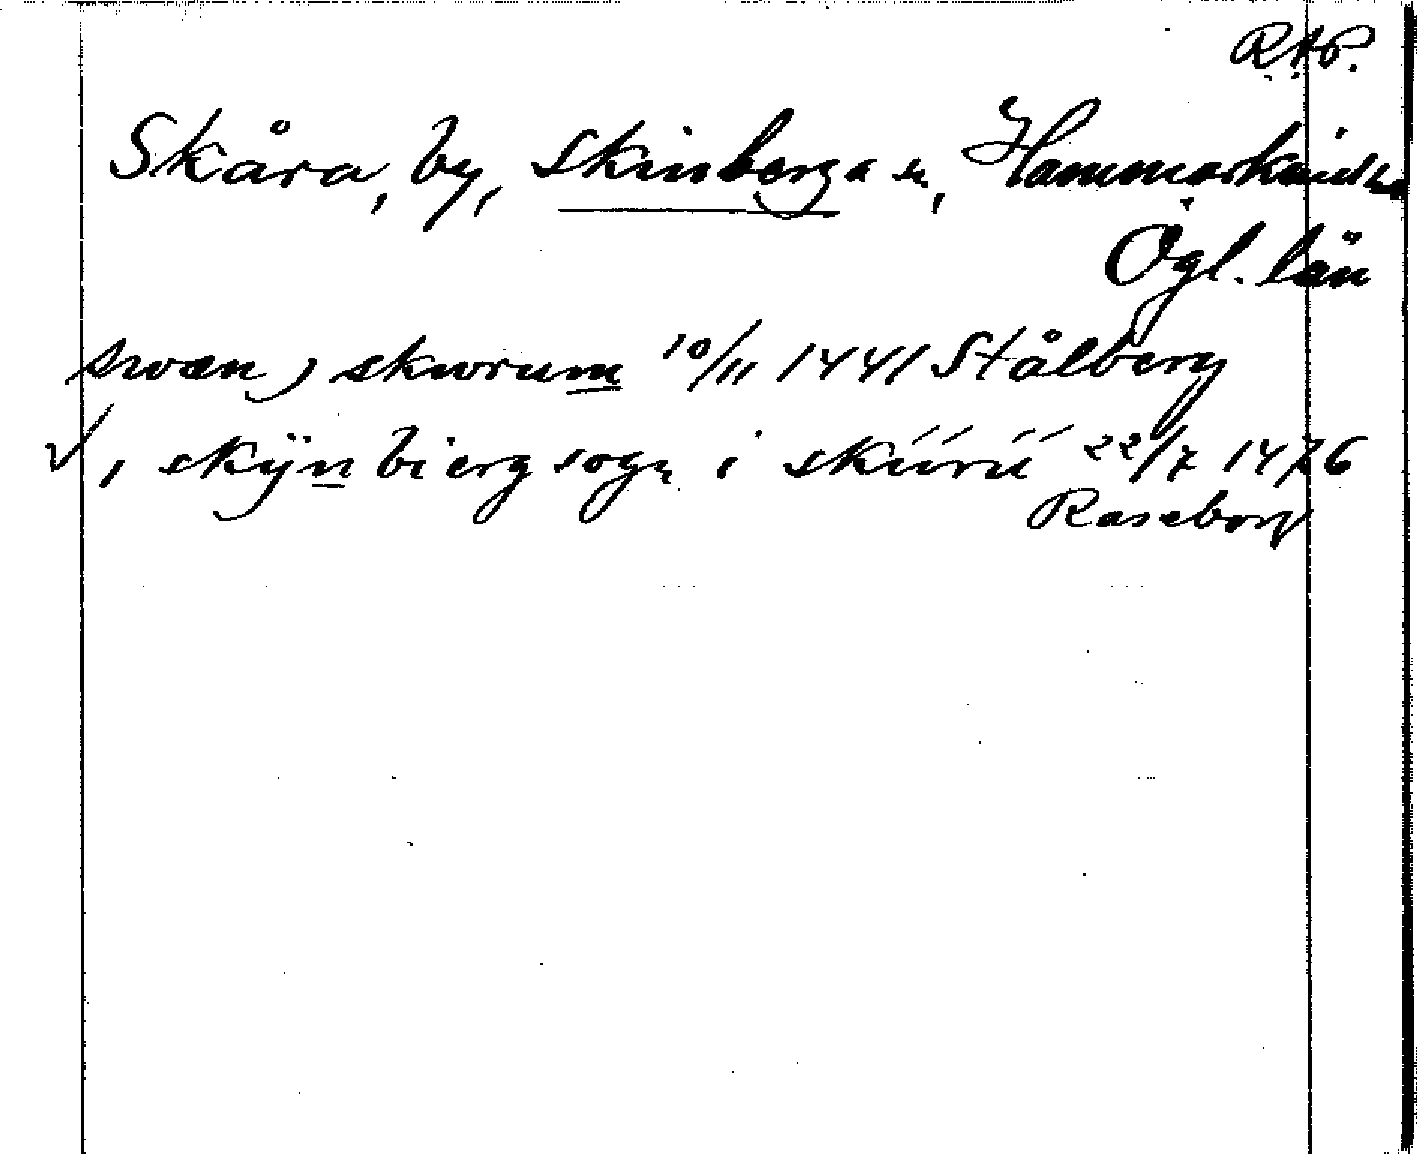 R.A.P.
Skåra, by, Skinberga sn, Hammarkinds hd
Ögl. län
swæn j skwrum 10/11 1441 Stålberg
√ i skÿnbierg sogn i skúrú 22/7 1476
Raseborg